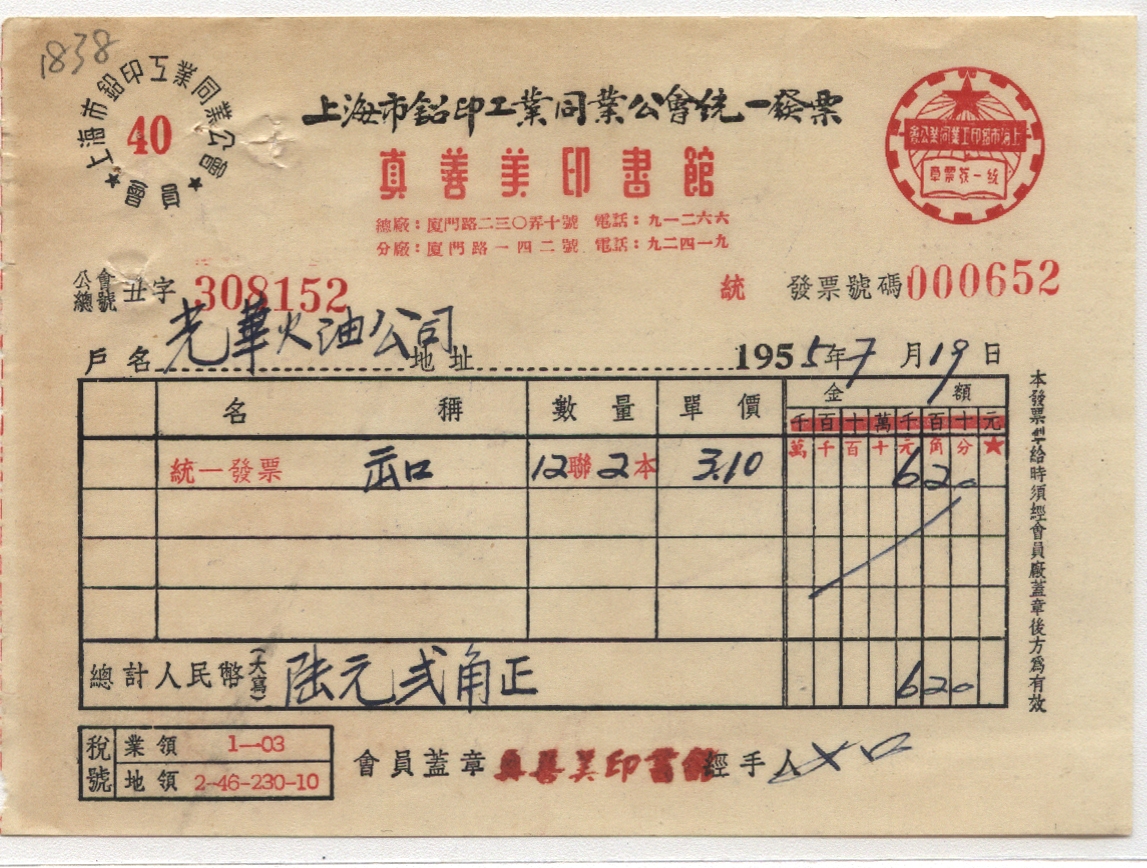 1838
上海市鉛印工業同業公會
40
★會員★
上海市鉛印工業同業公會統一發票
上海市鉛印工業同業公會
統一發票
真善美印書館
總廠：厦門路二三〇弄十號 電話：九一二六六
分廠：厦門路一四二號 電話：九二四一九
公會總號 丑字 308152 統 發票號碼 000652
戶名 光華火油公司 地址 1955年7月19日
名稱 數量 單價 金額
千百十萬千百十元
萬千百十元角分★
統一發票 12聯2本 3.10 620
總計人民幣(大寫) 陆元弍角正 620
本發票掣給時須經會員廠蓋章後方爲有效
稅號 業領 1—03
地領 2-46-230-10
會員蓋章 真善美印書館 經手人